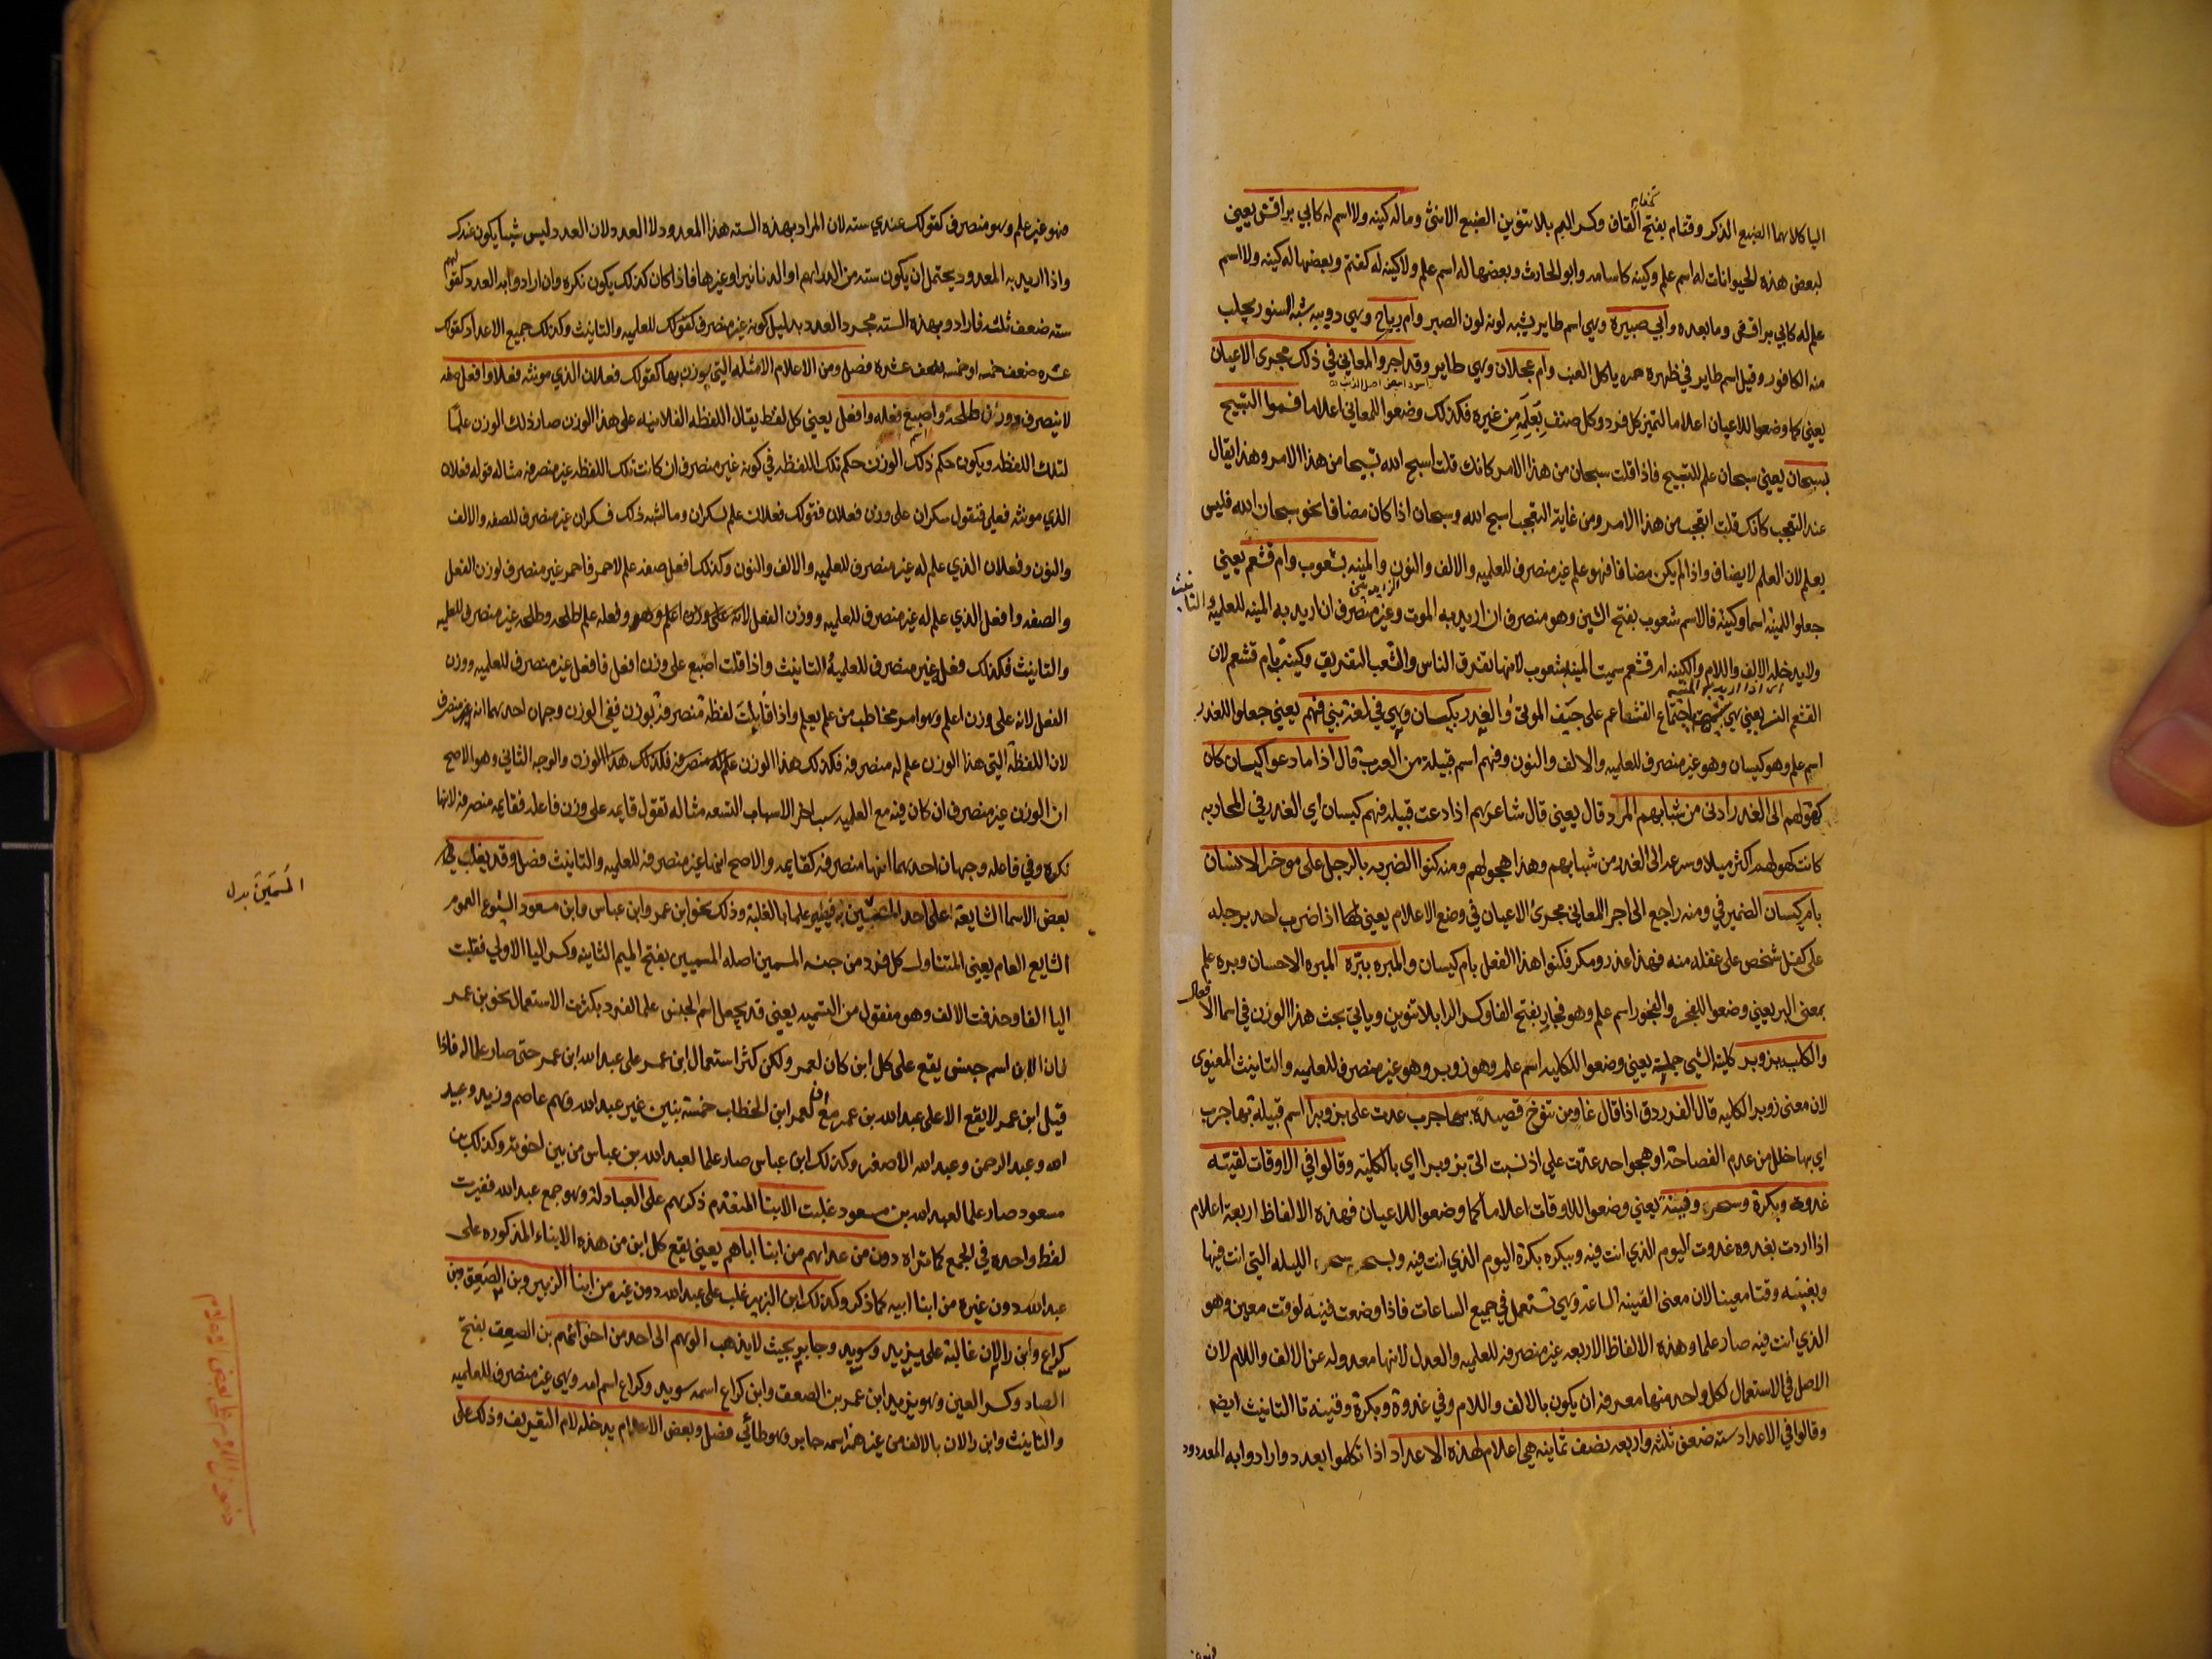 اليا كلاهما الضبع الذكر وقثام بفتح القاف وكسر الميم بلا تنوين الضبع الانثى وما له كنيه ولا اسم له كابي براقش يعني
لبعض هذه الحيوانات له اسم علم وكنيه كاسامه وابو الحارث وبعضها له اسم علم ولا كنيه له كقثم وبعضها له كنيه ولا اسم
علم له كابي براقش وما بعده وابي صبيرة وهي اسم طاير يشبه لونه لون الصبر وام رباح وهي دويبه شبه السنور يجلب
منه الكافور وقيل اسم طاير في ظهره حمره ياكل العنب وام عجلان وهي طاير وقد اجروا المعاني في ذلك مجرى الاعيان
يعني كما وضعوا للاعيان اعلاما لتميز كل فرد وكل صنف من غيره فكذلك وضعوا للمعاني اعلاما فسموا التسبيح
بسبحان يعني سبحان علم للتسبيح فاذا قلت سبحان من هذا الامر كانك قلت اسبح الله تسبيحا من هذا الامر وهذا يقال
عند التعجب كانك قلت اتعجب من هذا الامر ومن غاية التعجب اسبح الله وسبحان اذا كان مضافا نحو سبحان الله فليس
بعلم لان العلم لا يضاف واذا لم يكن مضافا فهو علم غير منصرف للعلميه والالف والنون والمنيه بشعوب وام قشعم يعني
جعلوا للمنية اسما وكنية فالاسم شعوب بفتح الشين وهو منصرف ان اريد به الموت وغير منصرف ان اريد به المنيه للعلمية والتانيث
ولا يدخله الالف واللام والكنيه ام قشعم سميت المنية بشعوب لانها تفرق الناس والشعب التفريق وكنيت بام قشعم لان
القشعم النسر يعني اجتماع القشاعم على جيف الموتى والغدر بكيسان وهي في لغة بني فهم يعني جعلوا للغدر
اسم علم وهو كيسان وهو غير منصرف للعلميه والالف والنون وفهم اسم قبيلة من العرب قال اذا ما دعوا كيسان كان
كهولهم الى الغدر ادنى من شبابهم المرد قال يعني قال شاعرهم اذا دعت قبيلة فهم كيسان اي الغدر في المحاربه
كانت كهولهم اكثر ميلا وسرعه الى الغدر من شبابهم وهذا هجو لهم ومنه كنوا الضربه بالرجل على موخر الانسان
بام كيسان الضمير في ومنه راجع الى اجرا المعاني مجرى الاعيان في وضع الاعلام يعني اذا ضرب احد برجله
على كفل شخص على غفله منه فهذا غدر ومكر فكنوا هذا الفعل بام كيسان والمبره ببره المبره الاحسان وبره علم
بمعنى البر يعني وضعوا للفجره والفجور اسم علم وهو فجار بفتح الفا وكسر الرا بلا تنوين وياتي بحث هذا الوزن في اسما الافعال
والكلب بزوبر كلية الشي جملته يعني وضعوا للكليه اسم علم وهو زوبر وهو غير منصرف للعلميه والتانيث المعنوى
لان معنى زوبر الكليه قال الفرزدق اذا قال غاو من تنوخ قصيدة بها جرب عدت على بزوبرا اسم قبيلة بها جرب
اي بها خلل من عدم الفصاحة او هجو احد عدت علي اذ نسبت الى بزوبرا اي بالكلية وقالوا في الاوقات لقيته
غدوة وبكرة وسحر وفينة يعني وضعوا للاوقات اعلاما كما وضعوا للاعيان فهذه الالفاظ اربعة اعلام
اذا اردت بغدوه غدوت اليوم الذي انت فيه وببكره بكرة اليوم الذي انت فيه وبسحر سحر الليله التي انت فيها
وبفينه وقتا معينا لان معنى الفينه الساعه وهي تستعمل في جميع الساعات فاذا وضعت فينه لوقت معين وهو
الذي انت فيه صار علما وهذه الالفاظ الاربعه غير منصرفه للعلميه والعدل لانها معدوله عن الالف واللام لان
الاصل في الاستعمال لكل واحد منها معرفه ان يكون بالالف واللام وفي غدوة وبكرة وفينه تا التانيث ايضا
وقالوا في الاعداد سته ضعف ثلثه واربعه نصف ثمانيه هي اعلام لهذه الاعداد اذا تكلموا بعدد وارادوا به المعدود
فهو غير علم وهو منصرف كقولك عندي سته لان المراد بهذه السته هذا المعدود لا العدد لان العدد ليس شيا يكون عندك
واذا اريد به المعدود يحتمل ان يكون سته من الدراهم او الدنانير او غيرها فاذا كان كذلك يكون نكره وان ارادوا به العدد كقولهم
سته ضعف ثلثه فارادوا بهذه السته مجرد العدد بدليل كونه غير منصرف كقولك للعلميه والتانيث وكذلك جميع الاعداد كقولك
عشره ضعف خمسه او خمسه نصف عشره فصل ومن الاعلام الامثله التي يوزن بها كقولك فعلان الذي مونثه فعلى وافعل صفه
لا ينصرف ووزن طلحة واصبع فعله وافعل يعني كل لفظ يقال اللفظه الفلانيه على هذا الوزن صار ذلك الوزن علما
لتلك اللفظه ويكون حكم ذلك الوزن حكم تلك اللفظه في كونه غير منصرف ان كانت تلك اللفظه غير منصرفه مثاله قوله فعلان
الذي مونثه فعلى فتقول سكران على وزن فعلان فقولك فعلان علم لسكران وما اشبه ذلك فسكران غير منصرف للصفه والالف
والنون وفعلان الذي علم له غير منصرف للعلميه والالف والنون وكذلك افعل صفه علم لاحمر فاحمر غير منصرف لوزن الفعل
والصفه وافعل الذي علم له غير منصرف للعلميه ووزن الفعل لانه على وزن اعلم وهو وفعله علم لطلحه وطلحه غير منصرف للعلميه
والتانيث فكذلك فعله غير منصرف للعلمية والتانيث واذا قلت اصبع على وزن افعل فافعل غير منصرف للعلميه ووزن
الفعل لانه على وزن اعلم وهو امر مخاطب من علم يعلم واذا قابلت لفظة منصرفة بوزن ففي الوزن وجهان احدهما انه غير منصرف
لان اللفظة التي هذا الوزن علم له منصرفه فكذلك هذا الوزن والوجه الثاني وهو الاصح
ان الوزن غير منصرف ان كان فيه مع العلميه سبب اخر الاسباب التسعه مثاله تقول قايمه على وزن فاعله فقايمه منصرفه لانها
نكرة وفي فاعله وجهان احدهما انها منصرفه كقايمه والاصح انها غير منصرفه للعلميه والتانيث فصل وقد يغلب
بعض الاسما الشايعة على احد المسمين به فيصير علما له بالغلبة وذلك نحو ابن عمر وابن عباس وابن مسعود الشيوع العموم
الشايع العام يعني المتناول كل فرد من جنسه المسمين اصله المسميين بفتح الميم الثانيه وكسر اليا الاولى فقلبت
اليا الفا وحذفت الالف وهو مفعول من التسميه يعني قد يجعل اسم الجنس علما لفرد بكثرت الاستعمال نحو بن عمر
فان الابن اسم جنس يقع على كل ابن كان لعمر ولكن كثر استعمال ابن عمر على عبد الله ابن عمر حتى صار علما له فاذا
قيل ابن عمر لا يقع الا على عبد الله بن عمر مع ان لعمر ابن الخطاب خمسة بنين غير عبد الله وهم عاصم وزيد وعبيد
الله وعبد الرحمن وعبد الله الاصغر وكذلك ابن عباس صار علما لعبد الله بن عباس من بين اخوته وكذلك بن
مسعود صار علما لعبد الله بن مسعود غلبت الابنا المتقدم ذكرهم على العبادلة وهو جمع عبد الله فغيرت
لفظ واحده في الجمع كما تراه دون من عداهم من ابنا اباهم يعني يقع كل ابن من هذه الابناء المذكوره على
عبد الله دون غيره من ابنا ابيه كما ذكر وكذلك ابن الزبير غلب على عبد الله دون غيره من ابنا الزبير وبن الصعق وبن
كراع وابن رالان غالبة على يزيد وسويد وجابر بحيث لا يذهب الوهم الى احد من اخواتهم بن الصعق بفتح
الصاد وكسر العين وهو يزيد ابن عمر بن الصعق وابن كراع اسمه سويد وكراع اسم امه وهي غير منصرف للعلميه
والتانيث وابن رالان بالالف من غير همز اسمه جابر وهو طائي فصل وبعض الاعلام يدخله لام التعريف وذلك على
المسمين بدل